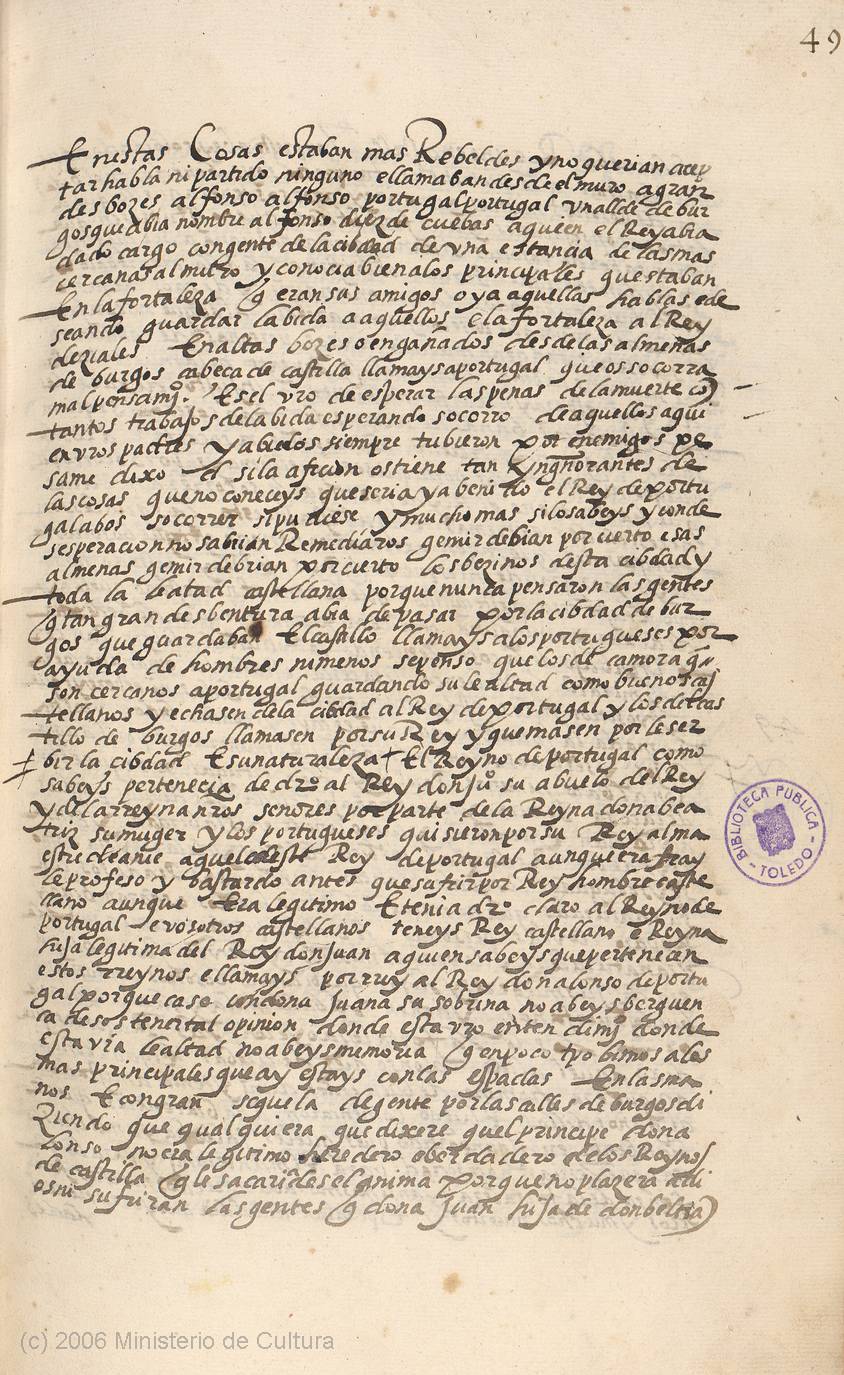 49
En estas Cosas estaban mas Rebeldes y no querian acep
tar habla ni partido ninguno e llamaban desde el muro a gran
des bozes alfonso alfonso portugal portugal vn allde de bur
gos que abia nombre alfonso diez de cuebas a quien el Rey abia
dado cargo con gente de la cibdad de vna estancia de las mas
cercanas al muro y conocia bien a los principales questaban
En la fortaleza q eran sus amigos oya aquellas hablas e de
seando guardar la bida a aquellos e la fortaleza al Rey
deziales En altas bozes o engañados desde las almenas
de burgos cabeca de castilla llamays a portugal que os socorra
mal pensamjo. Es el vro de esperar las penas de la muerte co
tantos trabajos de la bida esperando socorro de aquellos a qui
en vros padres y abuelos siempre tubieron por enemigos pe
same dixo si la aficion os tiene tan yngnorantes de
las cosas que no coneceys que seria ya benido el Rey de portu
gal a bos socorrer si pudiese y mucho mas si lo sabeys y con de
sesperacion no sabrian Remediaros gemir debian por cierto esas
almenas gemir debrian por cierto los bezinos desta cibdad y
toda la lealtad castellana porque nunca pensaron las gentes
q tan gran desbentura abia de pasar por la cibdad de bur
gos que guardaban El castillo llamays a los portugueses por
ayuda de hombres ni menos se penso que los de camora q
son cercanos a portugal guardando su lealtad como buenos cas
tellanos y echasen de la cibdad al Rey de portugal y los del cas
tillo de burgos llamasen por su Rey y quemasen por le ser
bir la cibdad Es su naturaleza + El Reyno de portugal como
sabeys pertenecia de dro al Rey don juo su abuelo del Rey
y de la rreyna nros señores por parte de la Reyna dona bea
triz su muger y los portugueses quisieron por su Rey al ma
estre de anis aquel deste Rey de portugal aunque era fray
le profeso y bastardo antes que sufrir por Rey hombre caste
llano aunque Era legitimo E tenia dro claro al Reyno de
portugal e vosotros castellanos teneys Rey castellano e Reyna
hija legitima del Rey don juan a quien sabeys que pertenecen
estos rreynos e llamays por rrey al Rey don alonso de portu
gal porque caso con dona juana su sobrina no abeys berguen
ca de sostener tal opinion donde esta vro entendimjo donde
esta vra lealtad no abeys memoria q en poco tpo bimos a los
mas principales que ay estays con las espadas En las ma
nos E con gran sequela de gente por las calles de burgos di
ziendo que qualquiera que dixere quel principe don a
lonso no era legitimo heredero e berdadero de los Reynos
de castilla q le sacarides el anima porque no plazera a di
os ni sufriran las gentes q dona Juan hija de don beltra
BIBLIOTECA PUBLICA - TOLEDO -
(c) 2006 Ministerio de Cultura